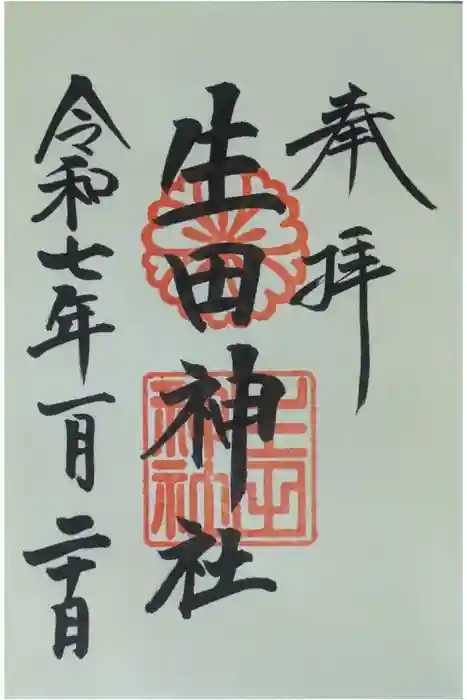 奉拝
生田神社
生田神社
令和七年一月二十日